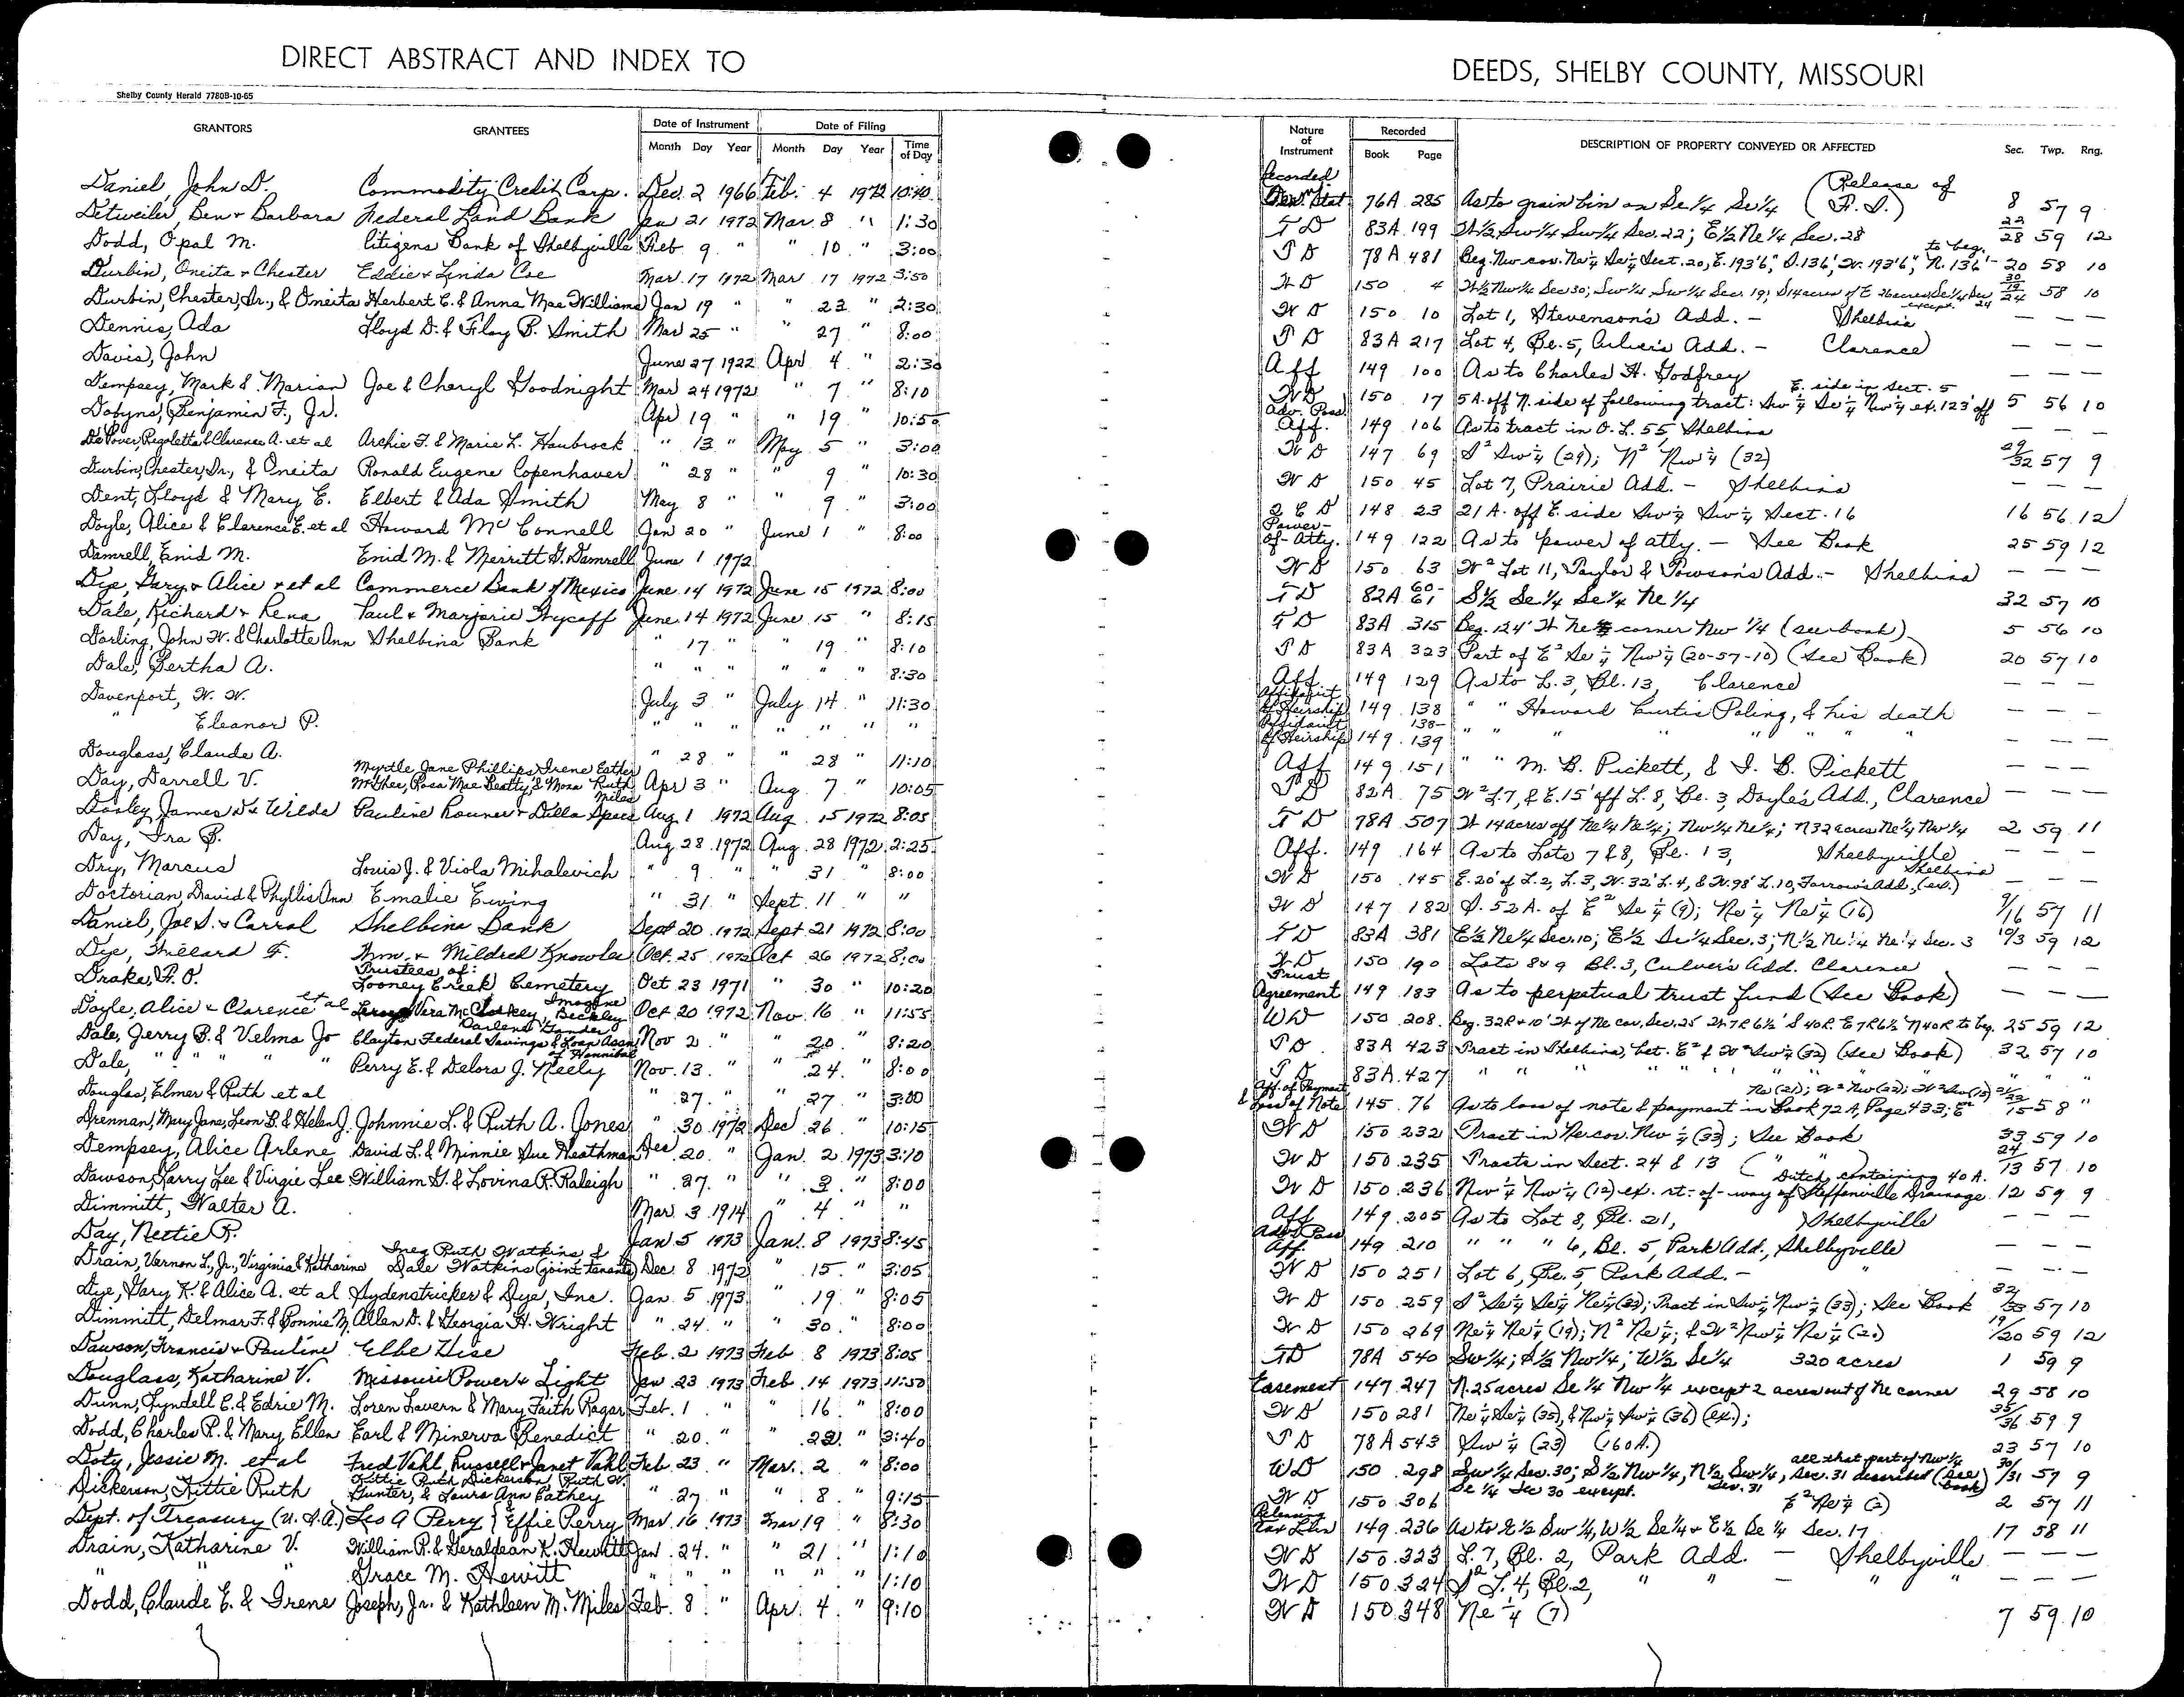 DIRECT ABSTRACT AND INDEX TO
Shelby County Herald 7780B-10-65
GRANTORS GRANTEES Date of Instrument Date of Filing
Month Day Year Month Day Year Time of Day
Daniel, John D. Commodity Credit Corp. Dec. 2 1966 Feb. 4 1972 10:40
Detweiler, Ben & Barbara Federal Land Bank Jan 21 1972 Mar. 8 " 1:30
Dodd, Opal M. Citizens Bank of Shelbyville Feb 9 " " 10 " 3:00
Durbin, Oneita & Chester Eddie & Linda Coe Mar. 17 1972 Mar 17 1972 3:50
Durbin, Chester, Sr., & Oneita Herbert C. & Anna Mae Williams Jan 19 " " 22 " 2:30
Dennis, Ada Floyd D. & Floy B. Smith Mar 25 " " 27 " 8:00
Davis, John June 27 1922 Apr 4 " 2:30
Dempsey, Mark & Marian Joe & Cheryl Goodnight Mar 24 1972 " 7 " 8:10
Dobyns, Benjamin F., Jr. Apr 19 " " 19 " 10:50
Clarence A. et al Archie F. & Marie L. Haubrock " 13 " May 5 " 3:00
Durbin, Chester, Sr., & Oneita Ronald Eugene Copenhaver " 28 " " 9 " 10:30
Dent, Lloyd & Mary E. Elbert & Ada Smith May 8 " " 9 " 3:00
Doyle, Alice & Clarence E. et al Howard McConnell Jan 20 " June 1 " 8:00
Damrell, Enid M. Enid M. & Merritt G. Damrell June 1 1972
Dye, Gary & Alice & et al Commerce Bank of Mexico June 14 1972 June 15 1972 8:00
Dale, Richard & Rena Paul & Marjorie Wycoff June 14 1972 June 15 " 8:15
Darling, John W. & Charlotte Ann Shelbina Bank " 17 " " 19 " 8:10
Dale, Bertha A. " " " " " " 8:30
Davenport, W. W. July 3 " July 14 " 11:30
" Eleanor P. " " " " " " "
Douglass, Claude A. " 28 " " 28 " 11:10
Myrtle Jane Phillips, Irene Esther
Day, Darrell V. Rosa Mae Beatty, & Mona Ruth Miles Apr 3 " Aug. 7 " 10:05
Dooley, James D. & Wilda Pauline Rouner & Dilla Spees Aug 1 1972 Aug. 15 1972 8:05
Day, Ira B. Aug 28 1972 Aug. 28 1972 2:25
Dry, Marcus Louis J. & Viola Mihalevich " 9 " " 31 " 8:00
Doctorian, David & Phyllis Ann Emalie Ewing " 31 " Sept. 11 " "
Daniel, Joe S. & Carrol Shelbina Bank Sept 20 1972 Sept. 21 1972 8:00
Dye, Willard F. Wm. & Mildred Knowles Oct. 25 1972 Oct 26 1972 8:00
Trustees of:
Drake, F. O. Looney Creek Cemetery Oct 23 1971 " 30 " 10:20
Doyle, Alice & Clarence et al Vera McCloskey, Imogene Beckley Oct 20 1972 Nov. 16 " 11:55
Darlene Gander
Dale, Jerry B. & Velma Jo Clayton Federal Savings & Loan Assn. of Hannibal Nov 2 " " 20 " 8:20
Dale, " " " " Perry E. & Delora J. Neely Nov. 13 " " 24 " 8:00
Douglas, Elmer & Ruth et al " 27 " " 27 " 3:00
Drennan, Mary Jane, Leon B. & Helen J. Johnnie L. & Ruth A. Jones " 30 1972 Dec 26 " 10:15
Dempsey, Alice Arlene David L. & Minnie Sue Heathman Dec. 20 " Jan. 2 1973 3:10
Dawson, Larry Lee & Virgie Lee William G. & Lovina R. Raleigh " 27 " " 3 " 8:00
Dimmitt, Walter A. Mar. 3 1914 " 4 " "
Day, Nettie R. Jan 5 1973 Jan. 8 1973 8:45
Inez Ruth Watkins &
Drain, Vernon L., Jr., Virginia & Katharine Dale Watkins (joint tenants) Dec. 8 1972 " 15 " 3:05
Dye, Gary K. & Alice A. et al Hydenstricker & Dye, Inc. Jan. 5 1973 " 19 " 8:05
Dimmitt, Delmar F. & Bonnie M. Allen D. & Georgia H. Wright " 24 " " 30 " 8:00
Dawson, Francis & Pauline Elbe Hise Feb. 2 1973 Feb 8 1973 8:05
Douglass, Katharine V. Missouri Power & Light Jan 23 1973 Feb. 14 1973 11:50
Dunn, Lyndell E. & Edrie M. Loren Lavern & Mary Faith Ragar Feb. 1 " " 16 " 8:00
Dodd, Charles R. & Mary Ellen Earl & Minerva Benedict " 20 " " 22 " 3:40
Doty, Jessie M. et al Fred Vahl, Russell & Janet Vahl Feb. 23 " Mar. 2 " 8:00
Kittie Ruth Dickerson, Ruth W.
Dickerson, Kittie Ruth Gunter, & Laura Ann Cathey " 27 " " 8 " 9:15
Dept. of Treasury (U.S.A.) Leo A Perry & Effie Perry Mar. 16 1973 Mar 19 " 8:30
Drain, Katharine V. William R. & Geraldean K. Hewitt Jan. 24 " " 21 " 1:10
" " " Grace M. Hewitt " " " " " " 1:10
Dodd, Claude E. & Irene Joseph, Jr. & Kathleen M. Miles Feb. 8 " Apr. 4 " 9:10
DEEDS, SHELBY COUNTY, MISSOURI
Nature of Instrument Recorded DESCRIPTION OF PROPERTY CONVEYED OR AFFECTED Sec. Twp. Rng.
Book Page
Recorded
Stat 76A 285 As to grain bin on Se 1/4 Se 1/4 (Release of F.S.) 8 57 9
TD 83A 199 W 1/2 Sw 1/4 Sw 1/4 Sec. 22; E 1/2 Ne 1/4 Sec. 28 22/28 59 12
TD 78A 481 Beg. Nw cor. Ne 1/4 Se 1/4 Sect. 20, E. 193'6", S. 136', W. 193'6", N. 136' to beg. - 20 58 10
WD 150 4 W 1/2 Nw 1/4 Sec 30; Sw 1/4 Sw 1/4 Sec. 19; S 14 acres of E 26 acres Se 1/4 Sec 24 except. 30/19/24 58 10
WD 150 10 Lot 1, Stevenson's Add. - Shelbina — — —
TD 83A 217 Lot 4, Bl. 5, Culver's Add. - Clarence — — —
Aff 149 100 As to Charles H. Godfrey — — —
WD 150 17 5 A. off N. side of following tract: Sw 1/4 Se 1/4 Nw 1/4 ex. 123' off E. side in Sect. 5 5 56 10
Adv. Poss. Aff. 149 106 As to tract in O. L. 55, Shelbina — — —
WD 147 69 S² Sw 1/4 (29); N² Nw 1/4 (32) 29/32 57 9
WD 150 45 Lot 7, Prairie Add. - Shelbina — — —
Q C D 148 23 21 A. off E. side Sw 1/4 Sw 1/4 Sect. 16 16 56 12
Power-of-Atty. 149 122 As to power of atty. - See Book 25 59 12
WD 150 63 W² Lot 11, Taylor & Towson's Add. - Shelbina — — —
TD 82A 60-61 S 1/2 Se 1/4 Se 1/4 Ne 1/4 32 57 10
TD 83A 315 Beg. 124' W Ne corner Nw 1/4 (see book) 5 56 10
TD 83A 323 Part of E² Se 1/4 Nw 1/4 (20-57-10) (See Book) 20 57 10
Aff 149 129 As to L. 3, Bl. 13, Clarence — — —
Affidavit of Heirship 149 138 " " Howard Curtis Poling, & his death — — —
Affidavit of Heirship 149 138-139 " " " " " " " — — —
Aff 149 151 " " M. B. Pickett, & I. B. Pickett — — —
TD 82A 75 W² L. 7, & E. 15' off L. 8, Bl. 3, Doyle's Add., Clarence — — —
TD 78A 507 W 14 acres off Ne 1/4 Ne 1/4; Nw 1/4 Ne 1/4; N 32 acres Ne 1/4 Nw 1/4 2 59 11
Aff. 149 164 As to Lots 7 & 8, Bl. 13, Shelbyville — — —
WD 150 145 E. 20' of L. 2, L. 3, W. 32' L. 4, & W. 98' L. 10, Farrow's Add., (ex.) Shelbina
WD 147 182 S. 52 A. of E² Se 1/4 (9); Ne 1/4 Ne 1/4 (16) 9/16 57 11
TD 83A 381 E 1/2 Ne 1/4 Sec. 10; E 1/2 Se 1/4 Sec. 3; N 1/2 Ne 1/4 Ne 1/4 Sec. 3 10/3 59 12
WD 150 190 Lots 8 & 9 Bl. 3, Culver's Add. Clarence — — —
Trust Agreement 149 183 As to perpetual trust fund (See Book) — — —
WD 150 208 Beg. 32R + 10' W of Ne cor. Sec. 25 W 7R 6 1/2' S 40R. E 7R 6 1/2' N 40R to beg. 25 59 12
TD 83A 423 Tract in Shelbina, bet. E² & W² Sw 1/4 (32) (See Book) 32 57 10
TD 83A 427 " " " " " " " " " "
Aff. of Payment & Loss of Note 145 76 As to loss of note & payment in Book 72A, Page 433; E² Ne (21); W² Nw (22); W² Sw (15) 21/22/15 58 "
WD 150 232 Tract in Ne cor. Nw 1/4 (33); See Book 33 59 10
WD 150 235 Tracts in Sect. 24 & 13 ( " " ) 24/13 57 10
WD 150 236 Nw 1/4 Nw 1/4 (12) ex. rt.-of-way of Steffenville Drainage Ditch, containing 40 A. 12 59 9
Aff 149 205 As to Lot 8, Bl. 21, Shelbyville — — —
Adv. Poss. Aff. 149 210 " " " 6, Bl. 5, Park Add., Shelbyville — — —
WD 150 251 Lot 6, Bl. 5, Park Add. - " — — —
WD 150 259 S² Se 1/4 Se 1/4 Ne 1/4 (32); Tract in Sw 1/4 Nw 1/4 (33); See Book 32/33 57 10
WD 150 269 Ne 1/4 Ne 1/4 (19); N² Ne 1/4; & W² Nw 1/4 Ne 1/4 (20) 19/20 59 12
TD 78A 540 Sw 1/4; S 1/2 Nw 1/4; W 1/2 Se 1/4 320 acres 1 59 9
Easement 147 247 N. 25 acres Se 1/4 Nw 1/4 except 2 acres out of Ne corner 29 58 10
WD 150 281 Ne 1/4 Se 1/4 (35), & Nw 1/4 Sw 1/4 (36) (ex.); 35/36 59 9
TD 78A 543 Sw 1/4 (23) (160 A.) 23 57 10
WD 150 298 Sw 1/4 Sec. 30; S 1/2 Nw 1/4, N 1/2 Sw 1/4, Sec. 31 all that part of Nw 1/4 Se 1/4 Sec 30 except. Sec. 31 described (See book) 30/31 57 9
WD 150 306 E² Ne 1/4 (2) 2 57 11
Release Tax Lien 149 236 As to E 1/2 Sw 1/4, W 1/2 Se 1/4 & E 1/2 Se 1/4 Sec. 17 17 58 11
WD 150 323 L. 7, Bl. 2, Park Add. - Shelbyville — — —
WD 150 324 S² L. 4, Bl. 2, " " - " — — —
WD 150 348 Ne 1/4 (7) 7 59 10